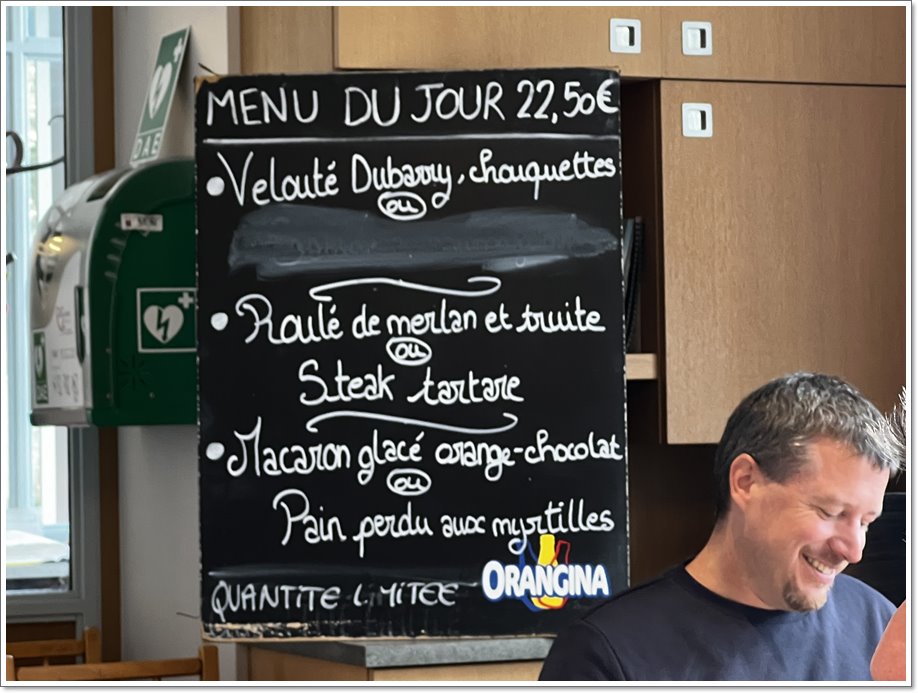 DAE
MENU DU JOUR 22,50€
• Velouté Dubarry, chouquettes
ou
• Roulé de merlan et truite
ou
Steak tartare
• Macaron glacé orange-chocolat
ou
Pain perdu aux myrtilles
QUANTITE LIMITEE
ORANGINA